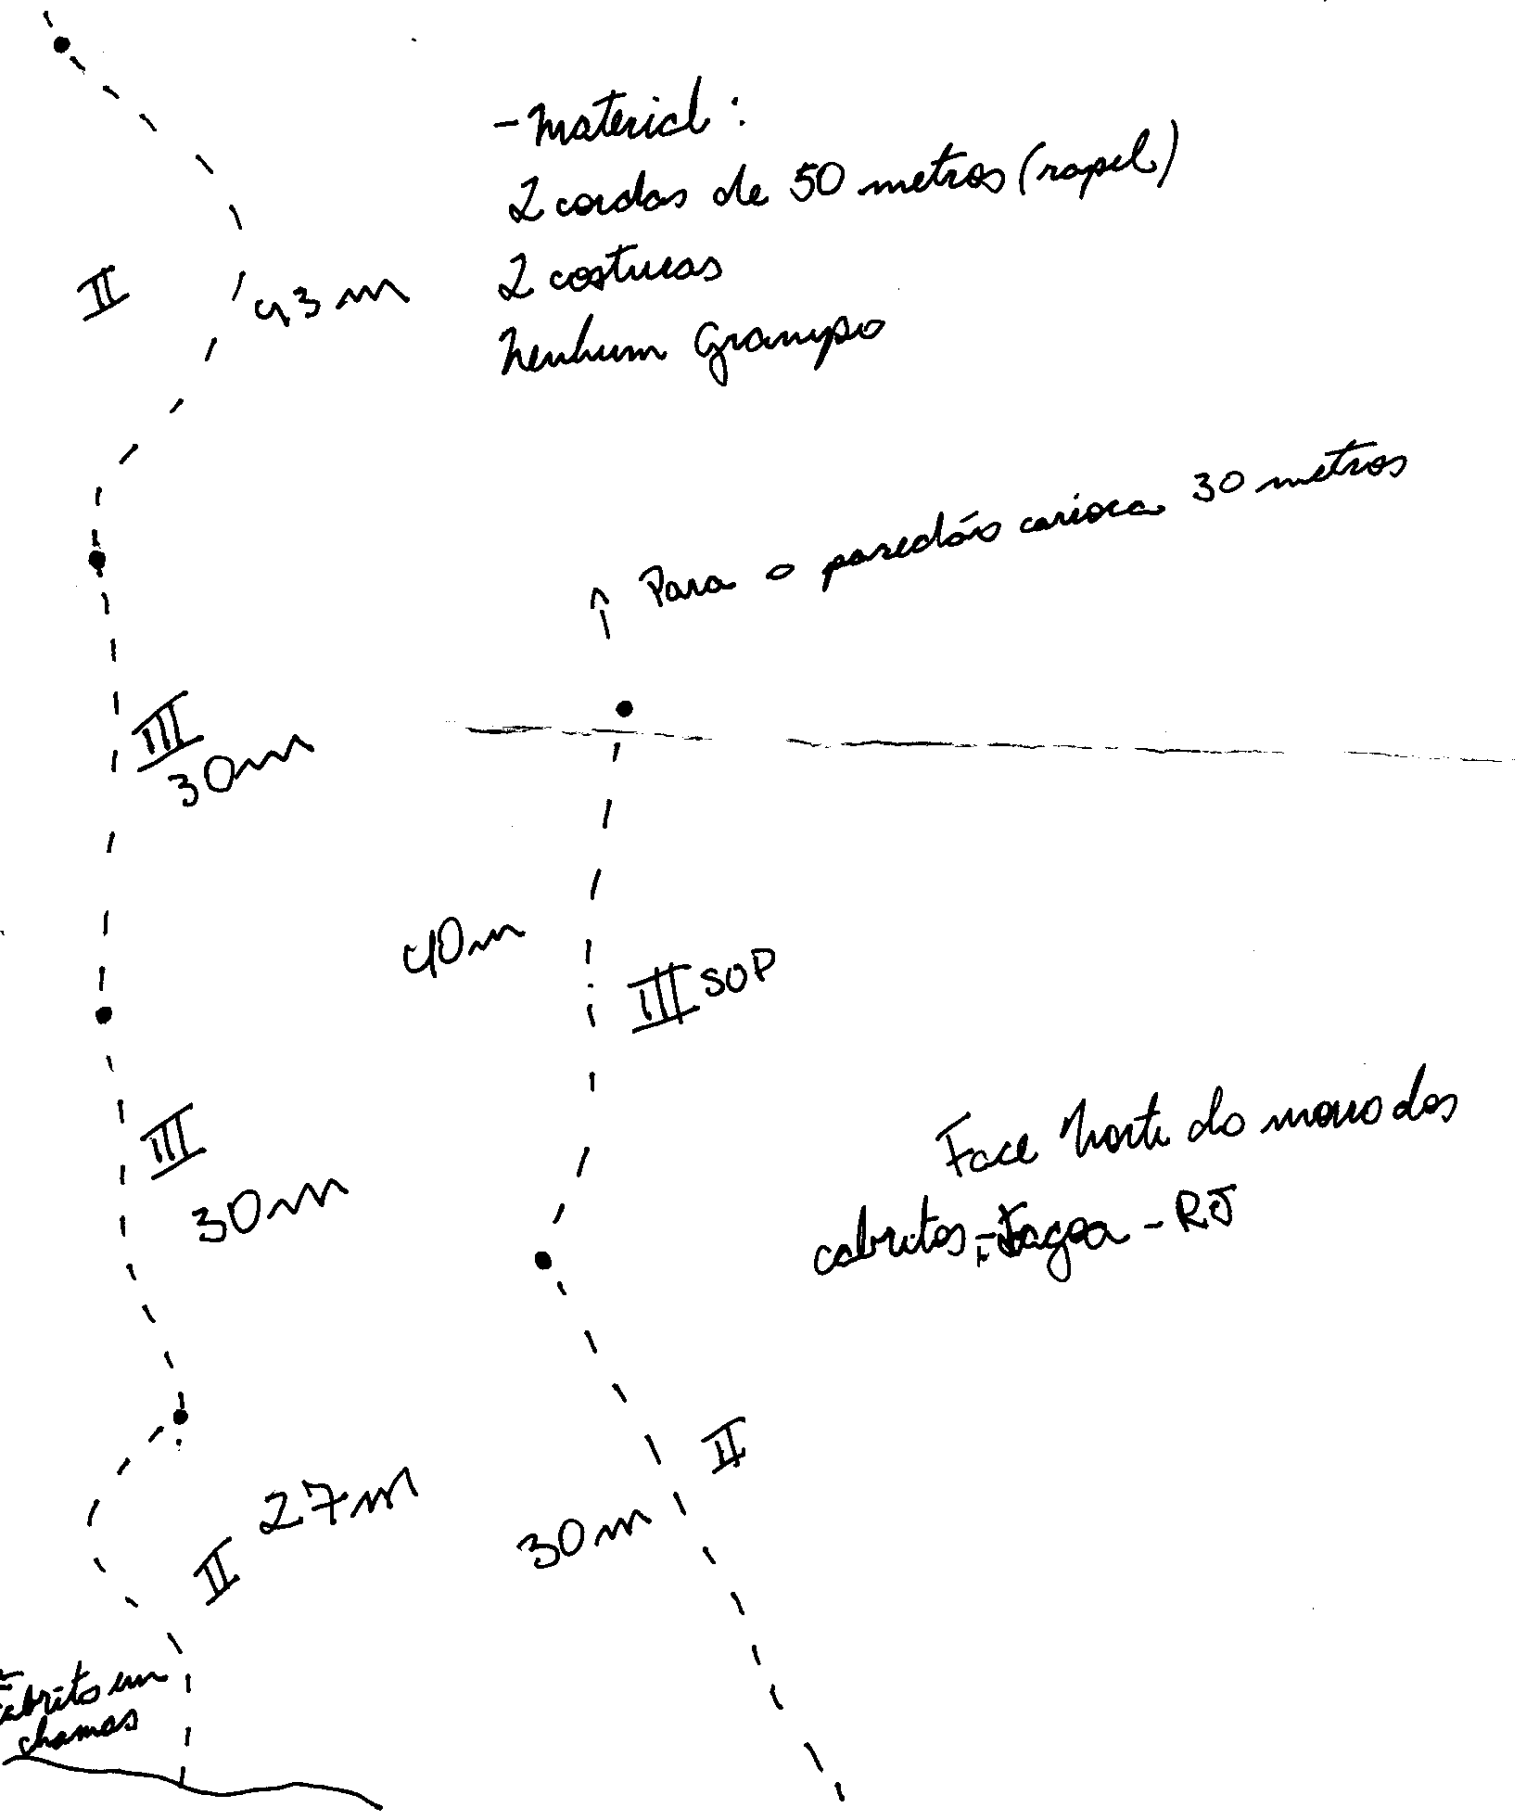 - Material:
2 cordas de 50 metros (rapel)
2 costuras
Nenhum Grampo
II
43 m
↑ Para o paredão carioca 30 metros
III
30m
40m
III SOP
III
30m
Face Norte do morro dos
cabritos, Lagoa - RJ
II
27m
II
30m
Cabrito em
chamas